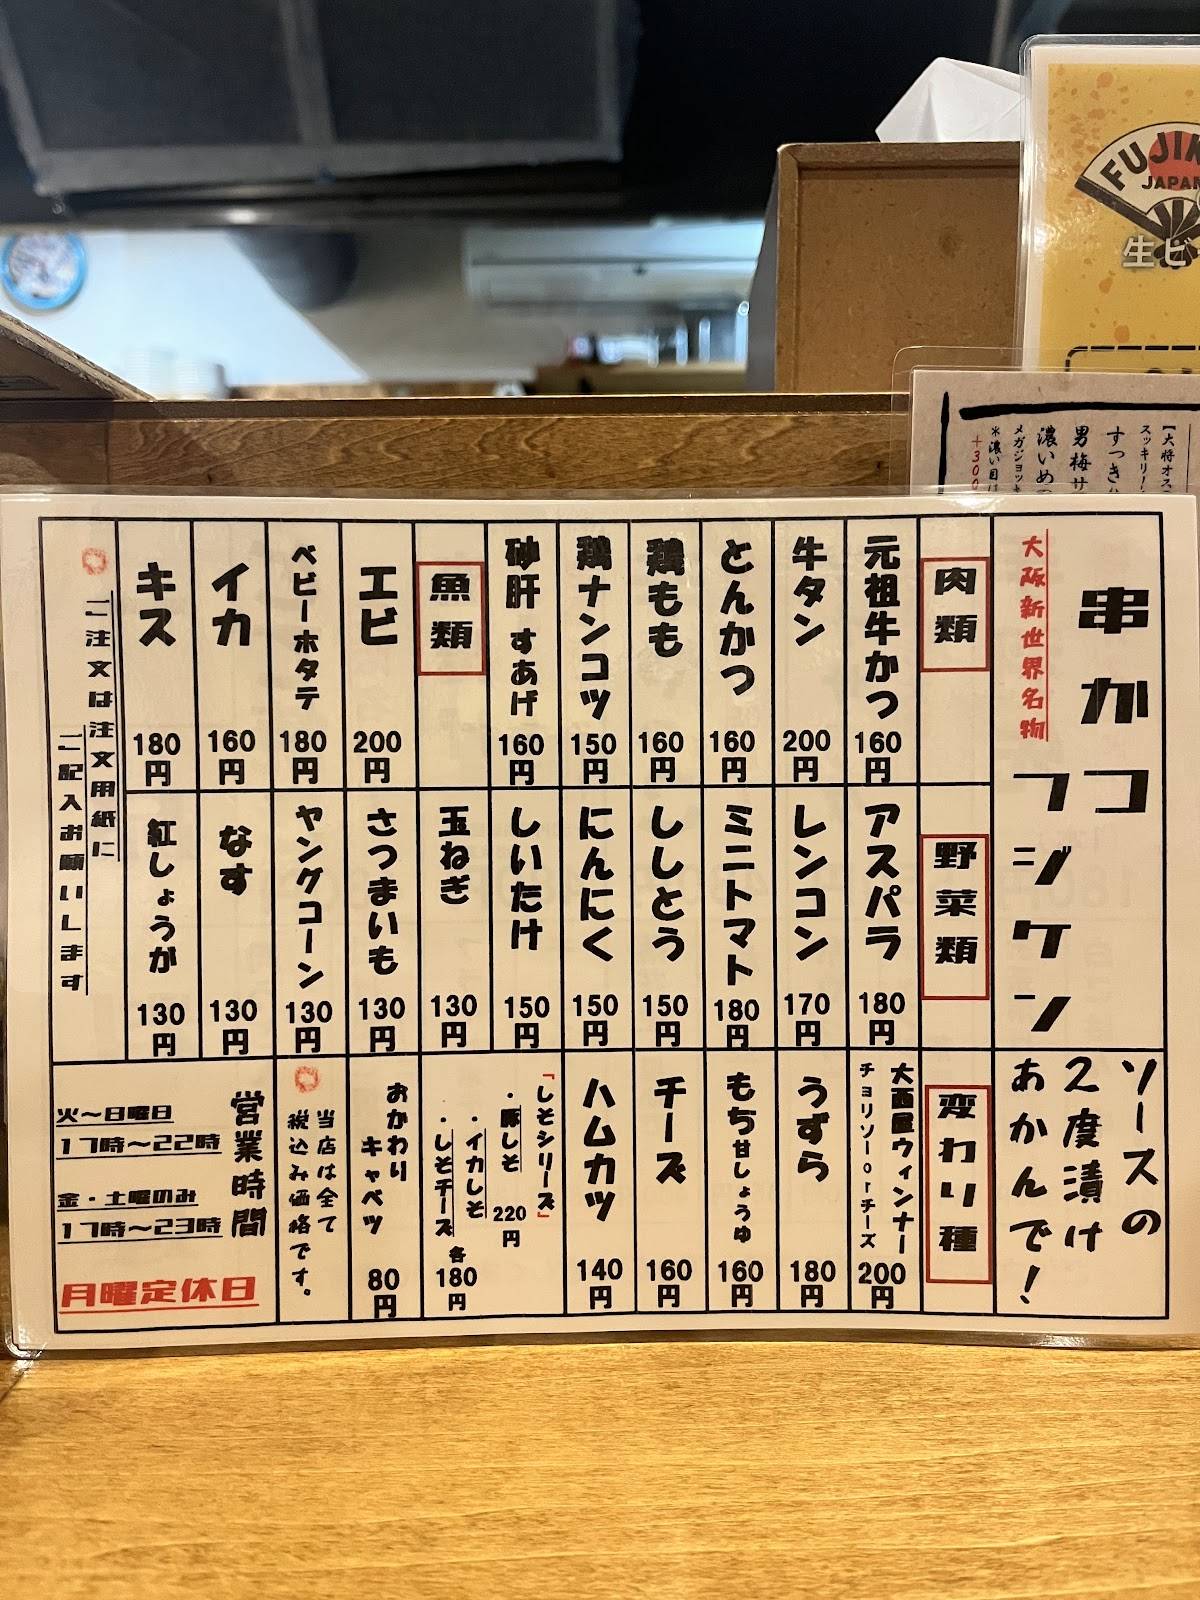 串かつ
フジケン
大阪新世界名物
ソースの
2度漬け
あかんで！
肉類
元祖牛かつ
160円
牛タン
200円
とんかつ
160円
鶏もも
160円
鶏ナンコツ
150円
砂肝 すあげ
160円
魚類
エビ
200円
ベビーホタテ
180円
イカ
160円
キス
180円
ご注文は注文用紙に
ご記入お願いします
野菜類
アスパラ
180円
レンコン
170円
ミニトマト
180円
ししとう
150円
にんにく
150円
しいたけ
150円
玉ねぎ
130円
さつまいも
130円
ヤングコーン
130円
なす
130円
紅しょうが
130円
変わり種
大西屋ウィンナー
チョリソーorチーズ
200円
うずら
180円
もち甘しょうゆ
160円
チーズ
160円
ハムカツ
140円
「しそシリーズ」
・豚しそ 220円
・イカしそ
・しそチーズ
各180円
おかわり
キャベツ
80円
当店は全て
税込み価格です。
営業時間
火〜日曜日
17時〜22時
金・土曜のみ
17時〜23時
月曜定休日
JAPAN
生ビ
すっき
男梅サ
濃いめ
メガジョッキ
+300